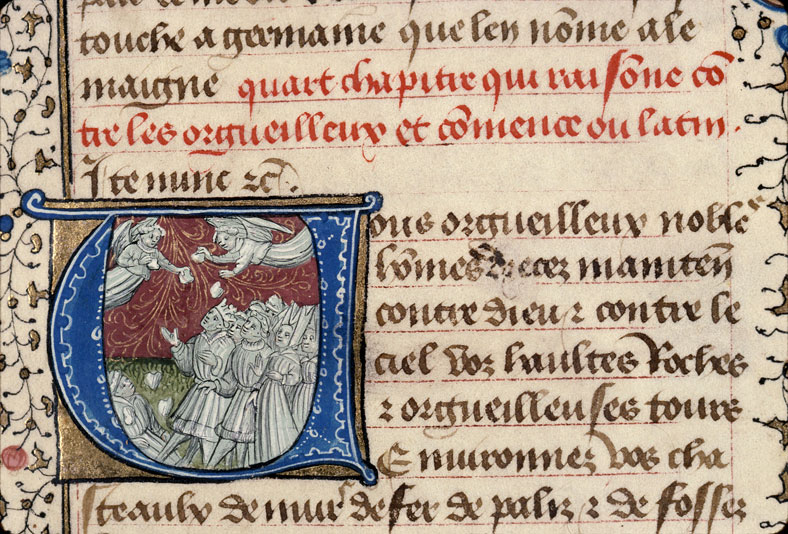 touche a germanie que len nome ale
maigne quart chapitre qui raisone co
tre les orgueilleux et comence ou latin.
Ite nunc ⁊c.
Vous orgueilleux nobles
homes drecez maintenn
contre dieu ⁊ contre le
ciel voz haultes Roches
⁊ orgueilleuses tours
Enuironnez vos cha
steaulx de murs de fer de paliz ⁊ de fossez